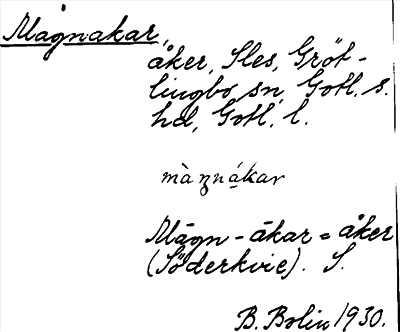 Mågnakar,
åker, Sles, Gröt-
lingbo sn, Gotl. s.
hd, Gotl. l.
Mågn-åkar = åker
(Söderkvie). S.
B. Bolin 1930.